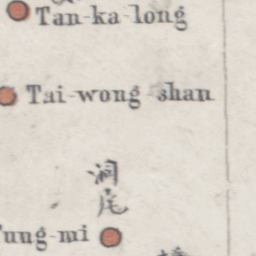 Tan-ka-long
Tai-wong-shan
洞尾
ung-mi